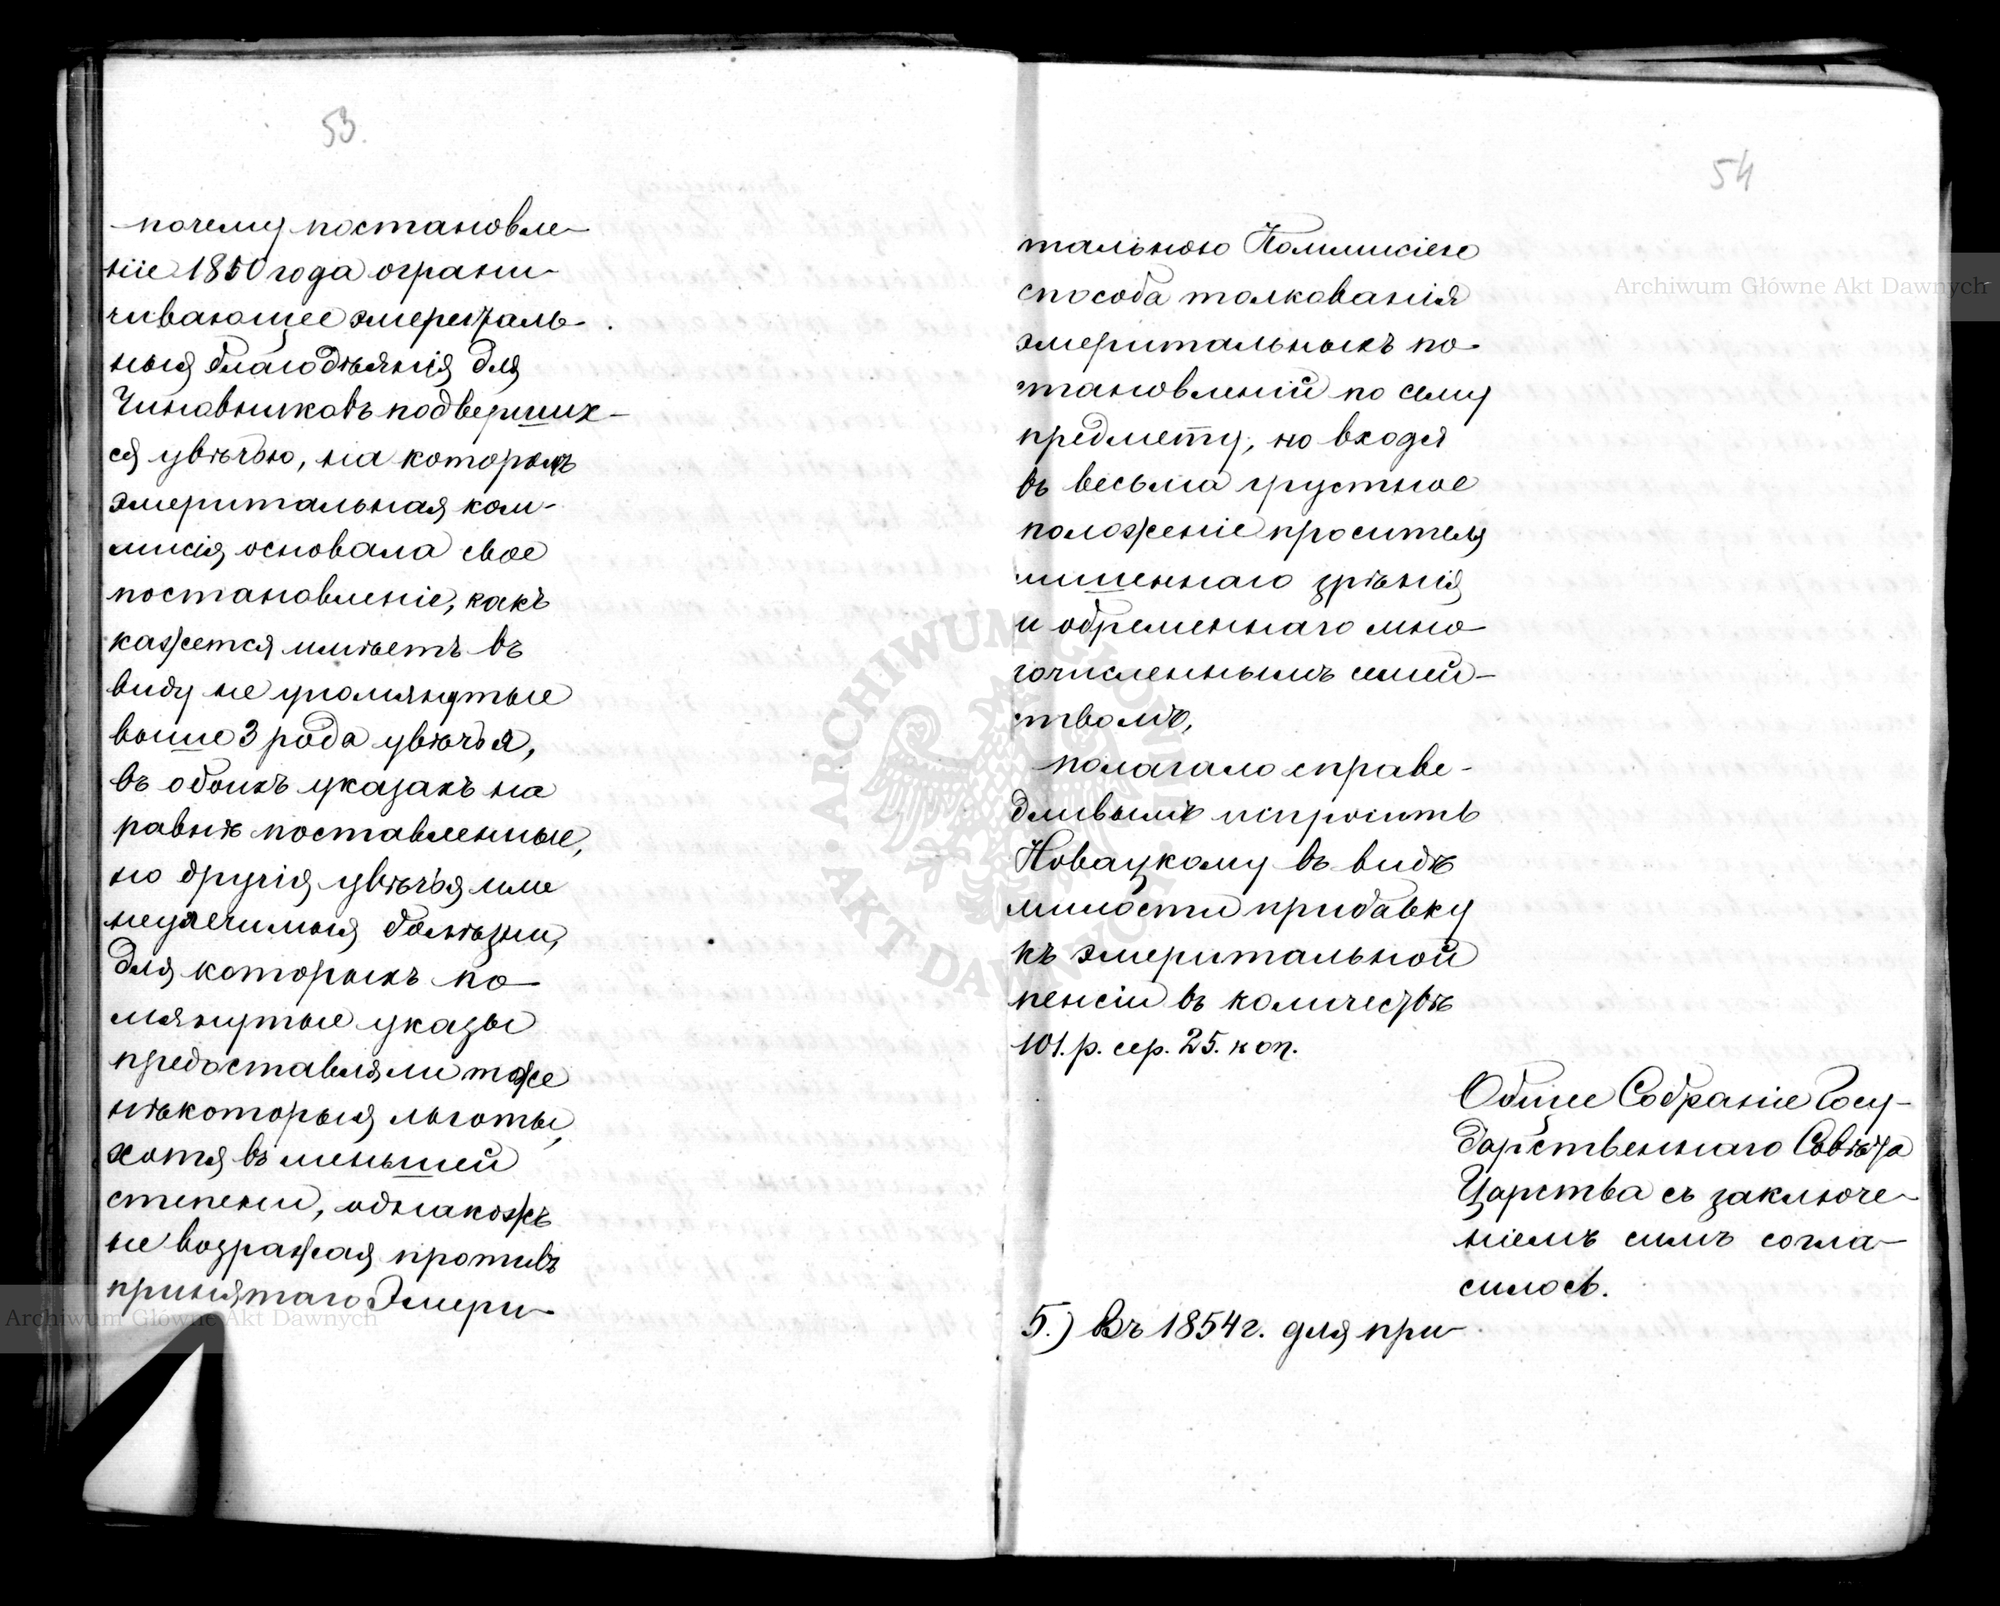 53.
почему постановле-
ніе 1850 года ограни-
чивающее эмериталь-
ныя благодѣянія для
Чиновниковъ подвергших-
ся увѣчью, на которомъ
эмеритальная ком-
мисія основала свое
постановленіе, какъ
кажется имѣетъ въ
виду не упомянутые
выше 3 рода увѣчья,
въ обоихъ указахъ на
равнѣ поставленные,
но другія увѣчья или
неизлечимыя болѣзни,
для которыхъ по-
мянутые указы
предоставляли тоже
нѣкоторыя льготы,
хотя въ меньшей
степени, однакожъ
не возражая противъ
принятаго Эмери-
54
тальною Коммисіею
способа толкованія
эмеритальныхъ по-
становленій по сему
предмету, но входя
въ весьма грустное
положеніе просителя
лишеннаго зрѣнія
и обремененнаго мно-
гочисленнымъ семей-
ствомъ,
полагало справе-
дливымъ испросить
Новацкому въ видѣ
милости прибавку
къ эмеритальной
пенсіи въ количествѣ
101. р. сер. 25. коп.
Общее Собраніе Госу-
дарственнаго Совѣта
Царства съ заключе-
ніемъ симъ согла-
силось.
5.) Въ 1854 г. для при-
Archiwum Główne Akt Dawnych
Archiwum Główne Akt Dawnych
ARCHIWUM GŁÓWNE AKT DAWNYCH